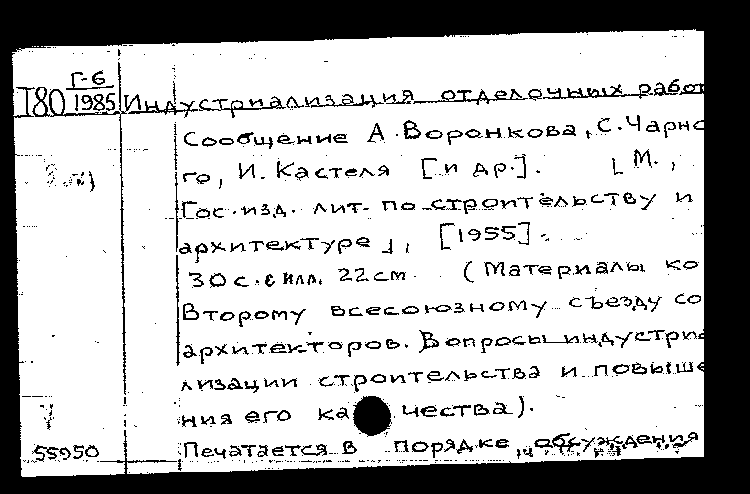 Г-6
Т80 1985 Индустриализация отделочных работ
Сообщение А. Воронкова, С. Чарно
го, И. Кастеля [и др.]. [М.,
Гос. изд. лит. по строительству и
архитектуре], [1955].
30 с. с илл. 22 см. (Материалы ко
Второму всесоюзному съезду со
архитекторов. Вопросы индустриа
лизации строительства и повыше
ния его качества).
55950 Печатается в порядке обсуждения